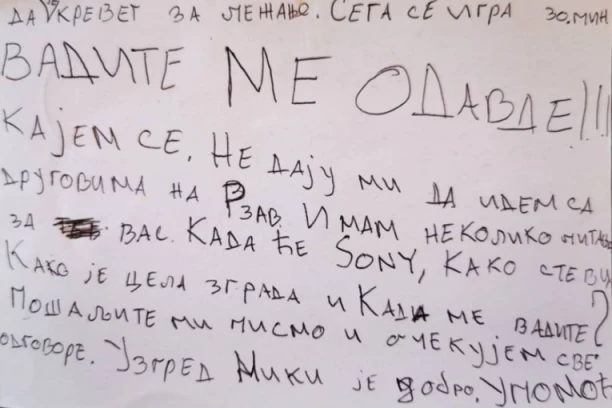 ДА УКРЕВЕТ ЗА ЛЕЖАЊЕ. СЕГА СЕ ИГРА 30. МИН
ВАДИТЕ МЕ ОДАВДЕ!!!
КАЈЕМ СЕ. НЕ ДАЈУ МИ ДА ИДЕМ СА
ДРУГОВИМА НА РЗАВ. ИМАМ НЕКОЛИКО ПИТАЊ
ЗА ВАС. КАДА ЋЕ SONY, КАКО СТЕ ВИ
КАКО ЈЕ ЦЕЛА ЗГРАДА И КАДА МЕ ВАДИТЕ?
ПОШАЉИТЕ МИ ПИСМО И ОЧЕКУЈЕМ СВЕ
ОДГОВОРЕ. УЗГРЕД МИКИ ЈЕ ДОБРО. УПОМОЋ